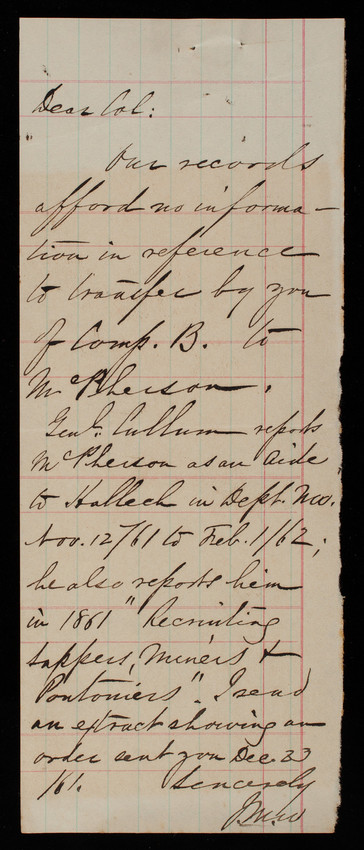 Dear Col:
Our records
afford no informa-
tion in reference
to transfer by you
of Comp. B. to
McPherson.
Genl. Cullum reports
McPherson as an Aide
to Halleck in Dept. Mo.
Nov. 12/61 to Feb. 1/62;
he also reports him
in 1861 "Recruiting
sappers, Miners &
Pontoniers". I send
an extract showing an
order sent you Dec. 23
/61. Sincerely